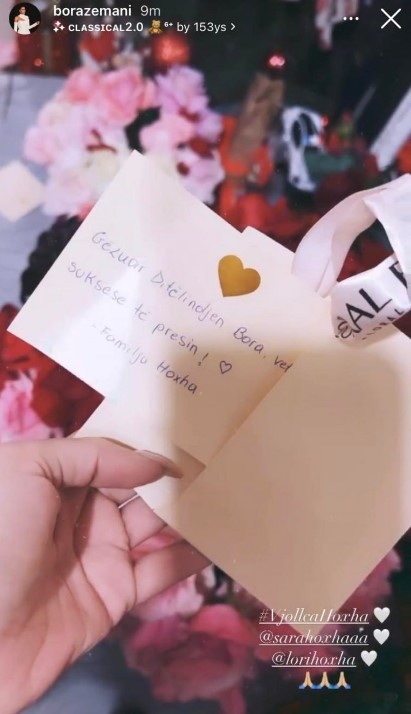 borazemani 9m
CLASSICAL2.0 6+ by 153ys >
Gëzuar Ditëlindjen Bora, vet
suksese të presin! ♡
- Familja Hoxha
#VjollcaHoxha 🤍
@sarahoxhaaa 🤍
@lorihoxha 🤍
🙏🏼🙏🏼🙏🏼